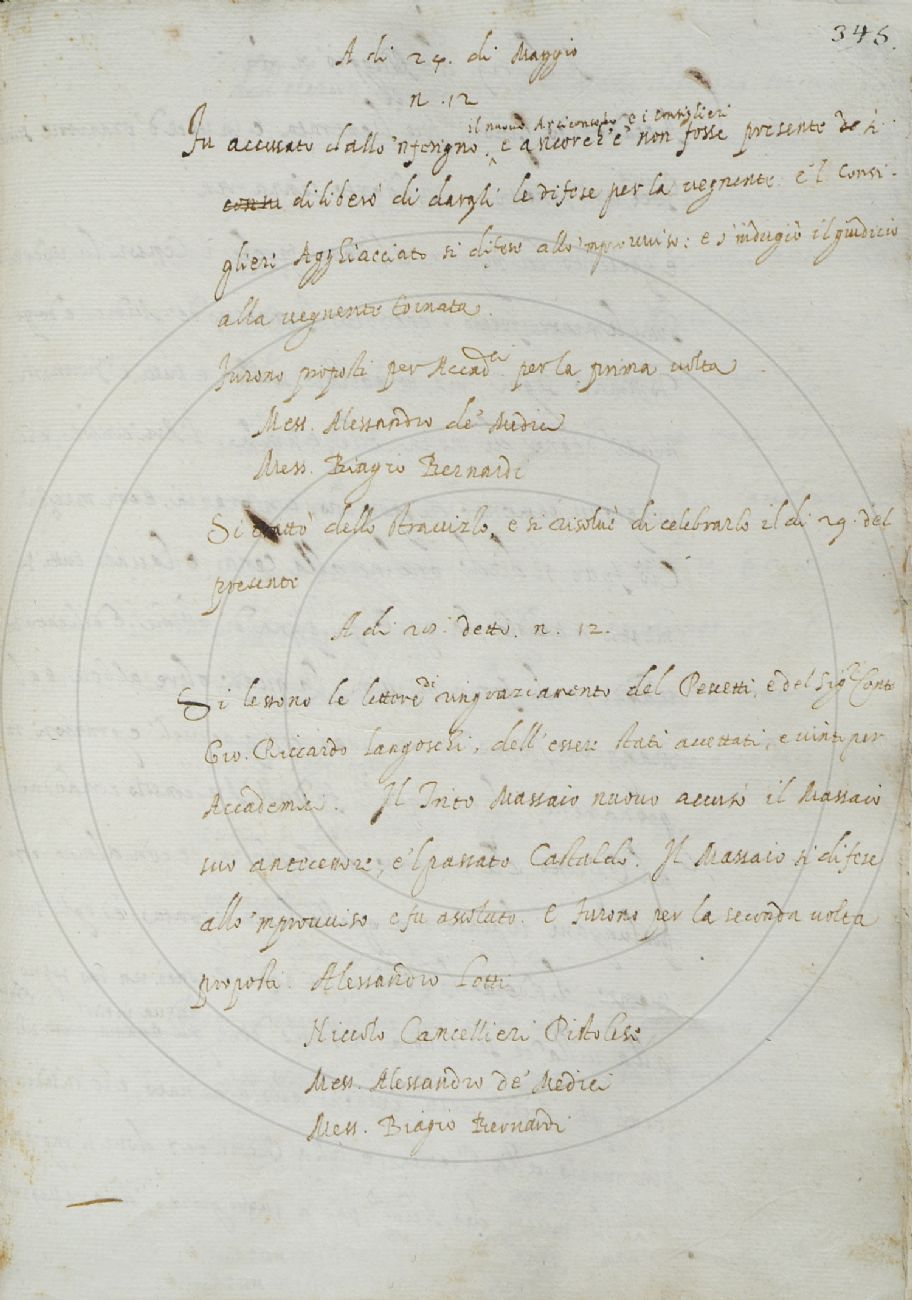 345.
A di 24. di Maggio
n. 12
il nuovo Arciconsolo e i Consiglieri
Fu accusato dallo 'nferigno, e ancorch'è non fosse presente
consu diliberò di dargli le difese per la vegnente e 'l Consi-
glieri Agghiacciato si difese allo 'mprovviso: e s'indugiò il giudicio
alla vegnente tornata.
Furono proposti per Accad.ci per la prima volta
Mess. Alessandro de' Medici
Mess. Biagio Bernardi
Si trattò dello Stravizzo, e si risolvé di celebrarlo il dì 29. del
presente
A di 28. detto. n. 12.
Si lessono le lettere di ringraziamento del Pescetti, e del Sig.r Conte
Gio. Riccardo Langoschi, dell'essere stati accettati, e vinti per
Accademici. Il Trito Massaio nuovo accusò il Massaio
suo antecessore, e 'l passato Castaldo. Il Massaio si difese
allo 'mprovviso, e fu assoluto. E furono per la seconda volta
proposti. Alessandro Potti
Niccolo Cancellieri Pistolese
Mess. Alessandro de' Medici
Mess. Biagio Bernardi